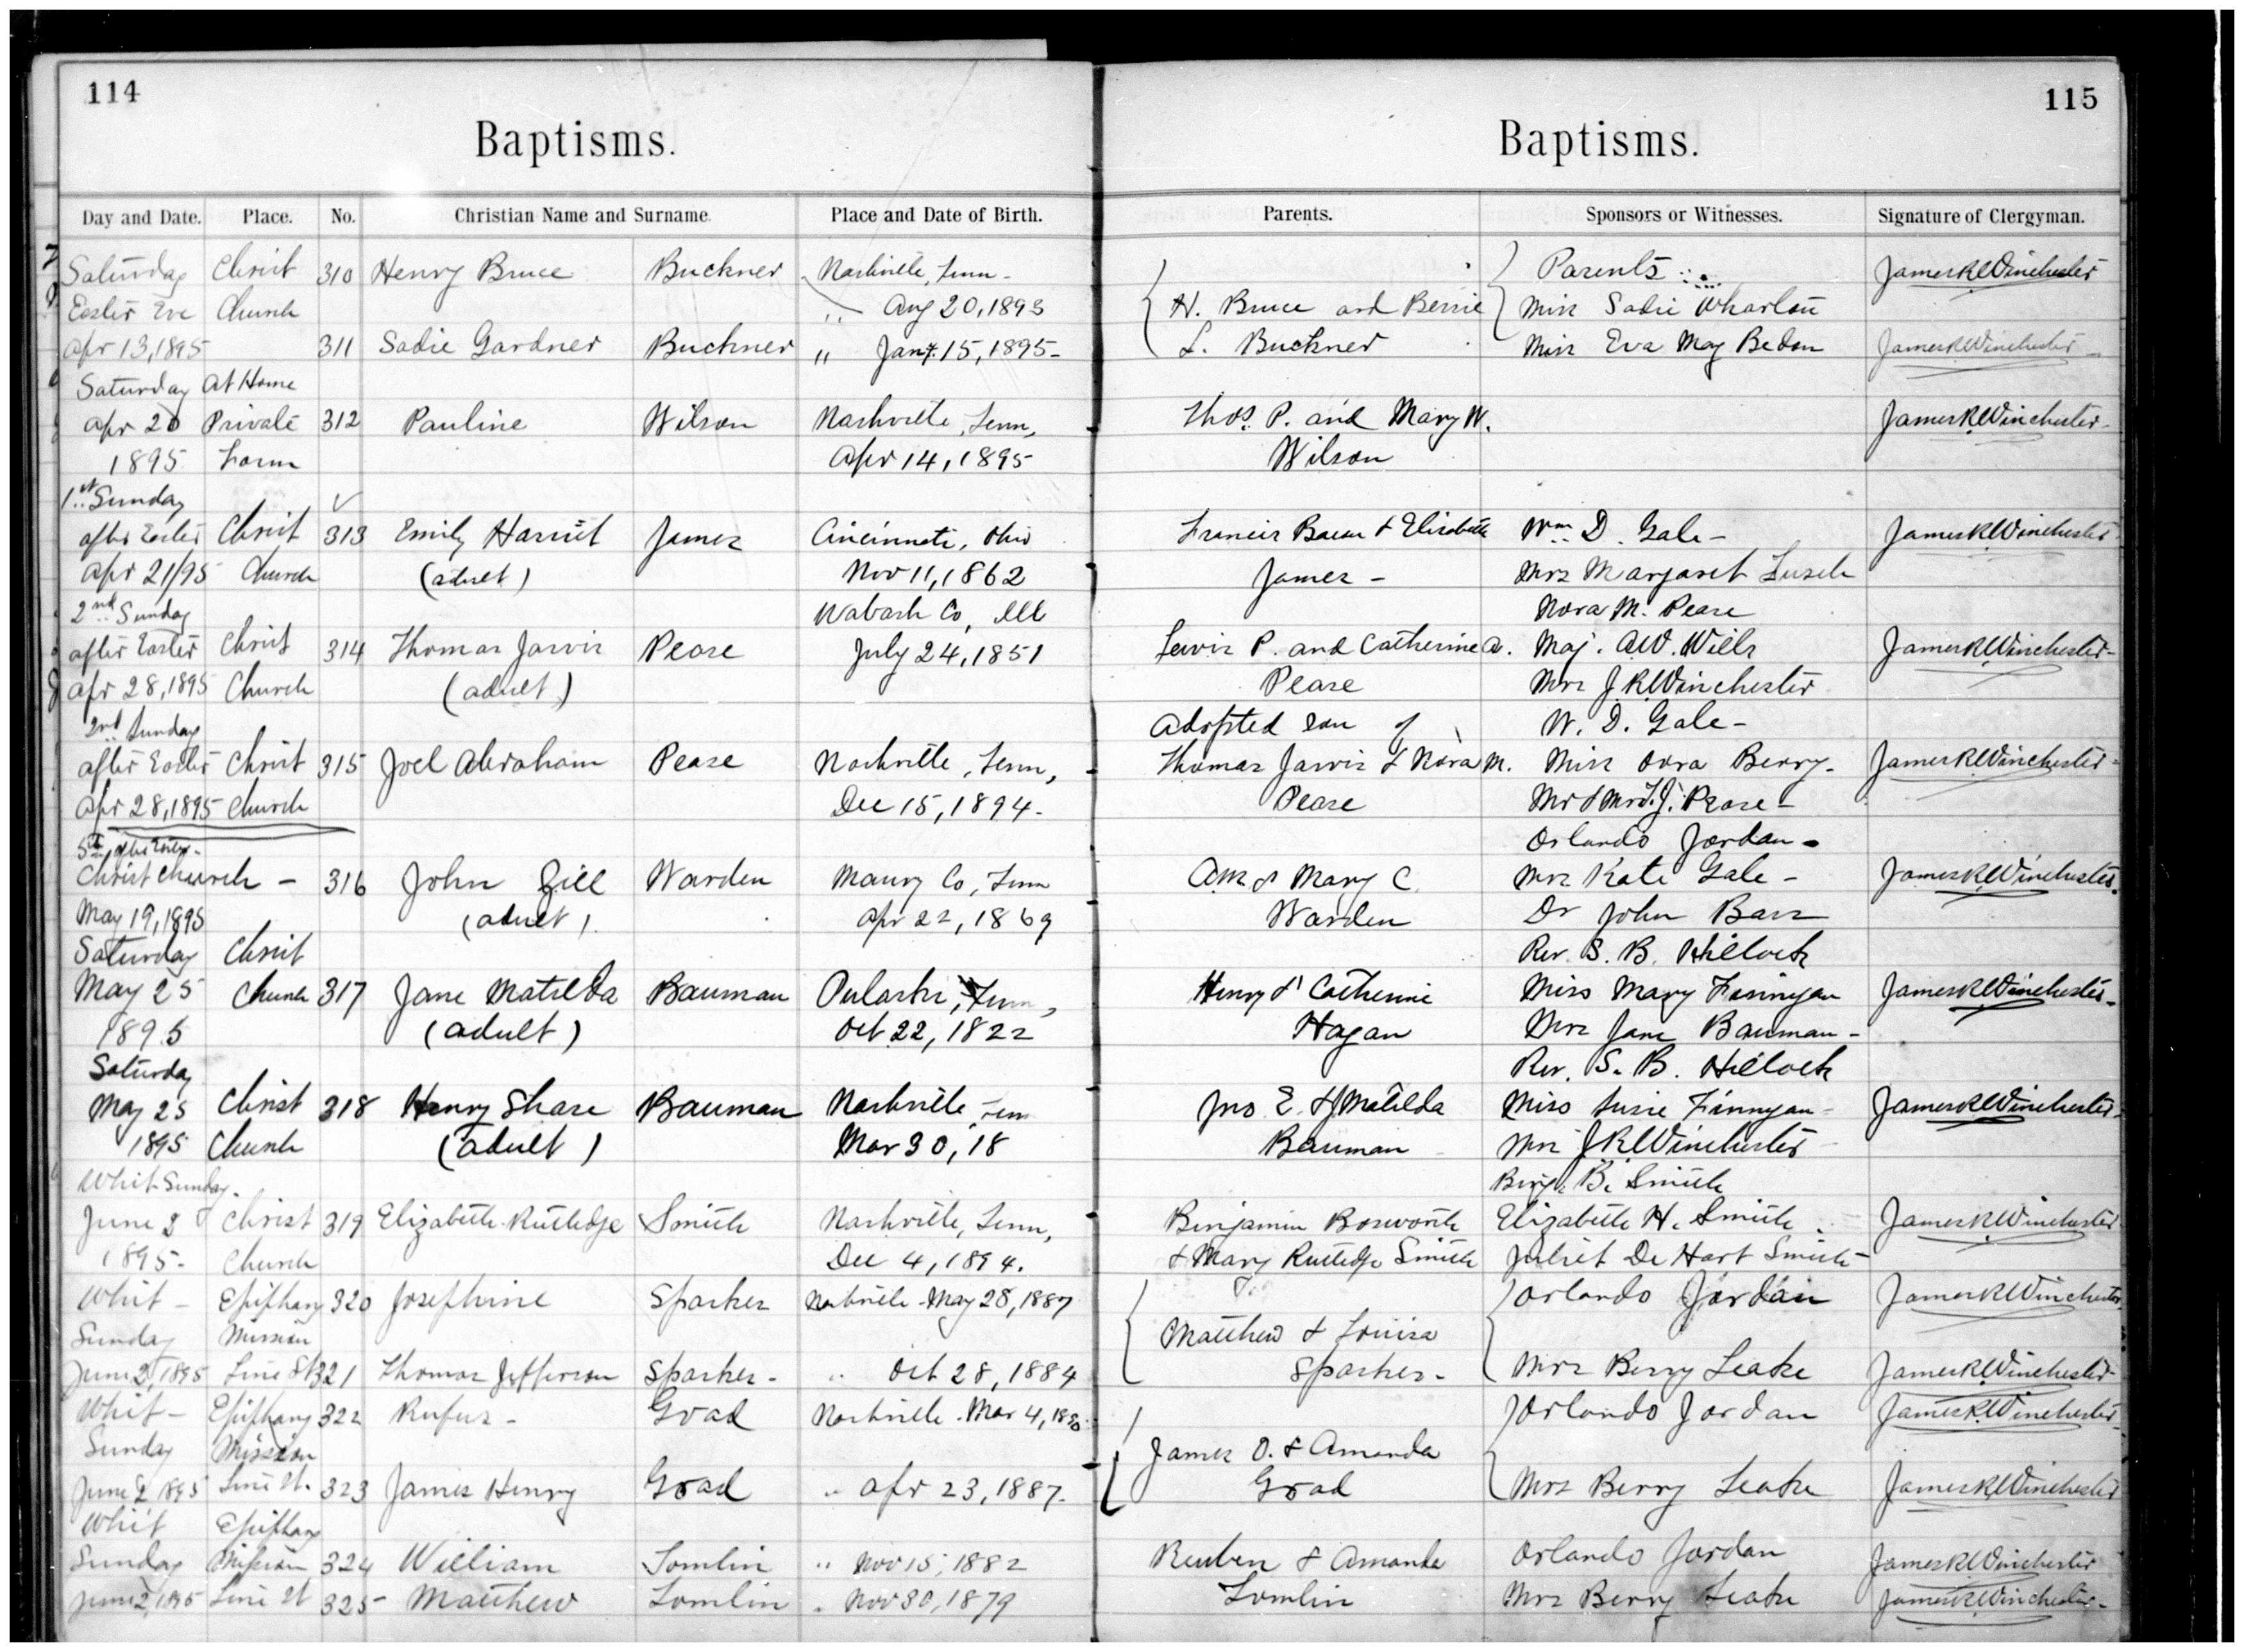 114
Baptisms.
Day and Date. Place. No. Christian Name and Surname. Place and Date of Birth.
Saturday Christ 310 Henry Bruce Buckner Nashville, Tenn-
Easter Eve Church " Aug 20, 1893
Apr 13, 1895 311 Sadie Gardner Buckner " Jan 15, 1895-
Saturday At Home
Apr 20 Private 312 Pauline Wilson Nashville, Tenn,
1895 Form Apr 14, 1895
1st Sunday
after Easter Christ 313 Emily Harriet James Cincinnati, Ohio
Apr 21/95 Church (adult) Nov 11, 1862
2nd Sunday Wabash Co, Ill
after Easter Christ 314 Thomas Jarvis Pease July 24, 1851
Apr 28, 1895 Church (adult)
2nd Sunday
after Easter Christ 315 Joel Abraham Pease Nashville, Tenn,
Apr 28, 1895 Church Dec 15, 1894-
5th after Easter-
Christ Church - 316 John Gill Warden Maury Co, Tenn
May 19, 1895 (adult) Apr 22, 1869
Saturday Christ
May 25 Church 317 Jane Matilda Bauman Pulaski, Tenn,
1895 (adult) Oct 22, 1822
Saturday
May 25 Christ 318 Henry Share Bauman Nashville, Tenn
1895 Church (adult) Mar 30, 18
Whit Sunday-
June 2 Christ 319 Elizabeth Rutledge Smith Nashville, Tenn,
1895- Church Dec 4, 1894.
Whit- Epiphany 320 Josephine Sparkes Nashville-May 28, 1887
Sunday Mission
June 2, 1895 Line St 321 Thomas Jefferson Sparkes- " Oct 28, 1884
Whit- Epiphany 322 Rufus- Goad Nashville. Mar 4,
Sunday Mission
June 2 1895 Line St. 323 James Henry Goad " Apr 23, 1887-
Whit Epiphany
Sunday Mission 324 William Tomlin " Nov 15, 1882
June 2, 1895 Line St 325- Matthew Tomlin " Nov 30, 1879
115
Baptisms.
Parents. Sponsors or Witnesses. Signature of Clergyman.
Parents James R Winchester
H. Bruce and Bessie Miss Sadie Wharton
L. Buckner Miss Eva May Bedon James R Winchester
Thos. P. and Mary W. James R Winchester-
Wilson
Francis Bacon & Elizabeth Wm. D. Gale- James R Winchester-
James- Mrs Margaret
Nora M. Pease
Lewis P. and Catherine A. Maj. A.W. Wills James R Winchester-
Pease Mrs J R Winchester
Adopted son of W. D. Gale-
Thomas Jarvis & Nora M. Miss Berry- James R Winchester-
Pease Mr & Mrs T. J. Pease-
Orlando Jordan-
& Mary C. Mrs Kate Gale- James R Winchester.
Warden Dr John Bass
Rev. S. B. Hillock
Henry & Catherine Miss Mary Finnegan James R Winchester-
Hagan Mrs Jane Bauman-
Rev. S. B. Hillock
Jno E. & J Matilda Miss Susie Finnegan- James R Winchester-
Bauman Mrs J R Winchester
Benj. B. Smith
Benjamin Bosworth Elizabeth H. Smith James R Winchester
& Mary Rutledge Smith Juliet De Hart Smith-
Orlando Jordan James R Winchester
Matthew & Louisa
Sparkes- Mrs Berry Leake James R Winchester-
Orlando Jordan James R Winchester
James O. & Amanda
Goad Mrs Berry Leake James R Winchester
Reuben & Amanda Orlando Jordan James R Winchester
Tomlin Mrs Berry Leake James R Winchester-